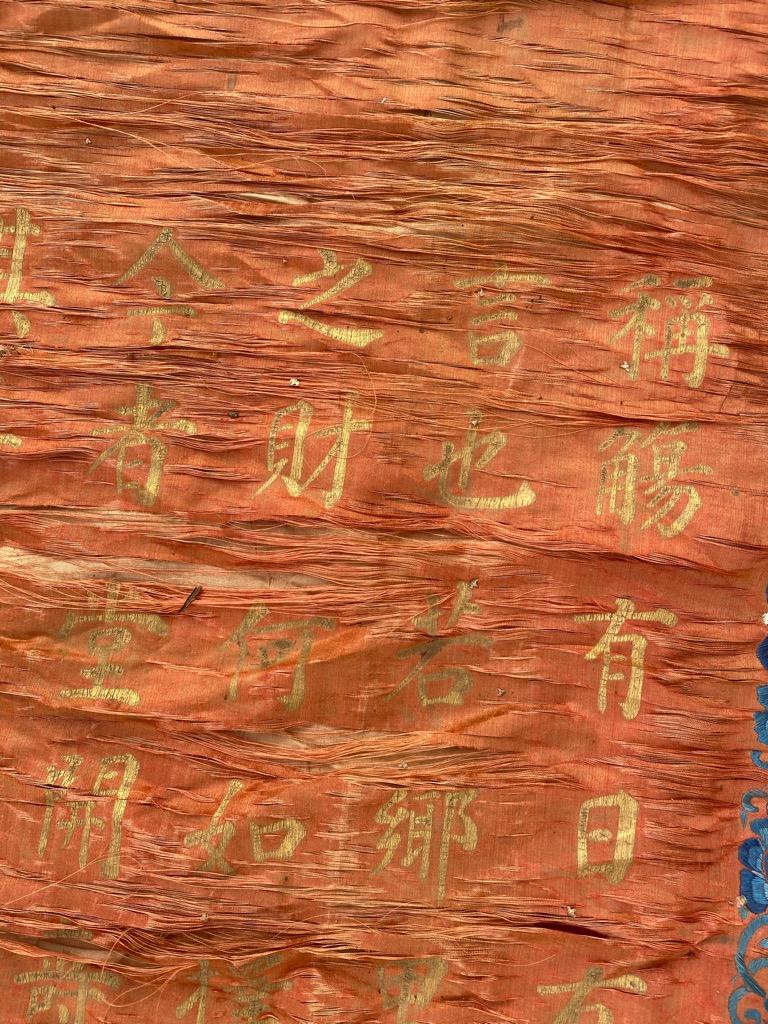 稱觴有日
言也若鄉
之財何如
今者堂開